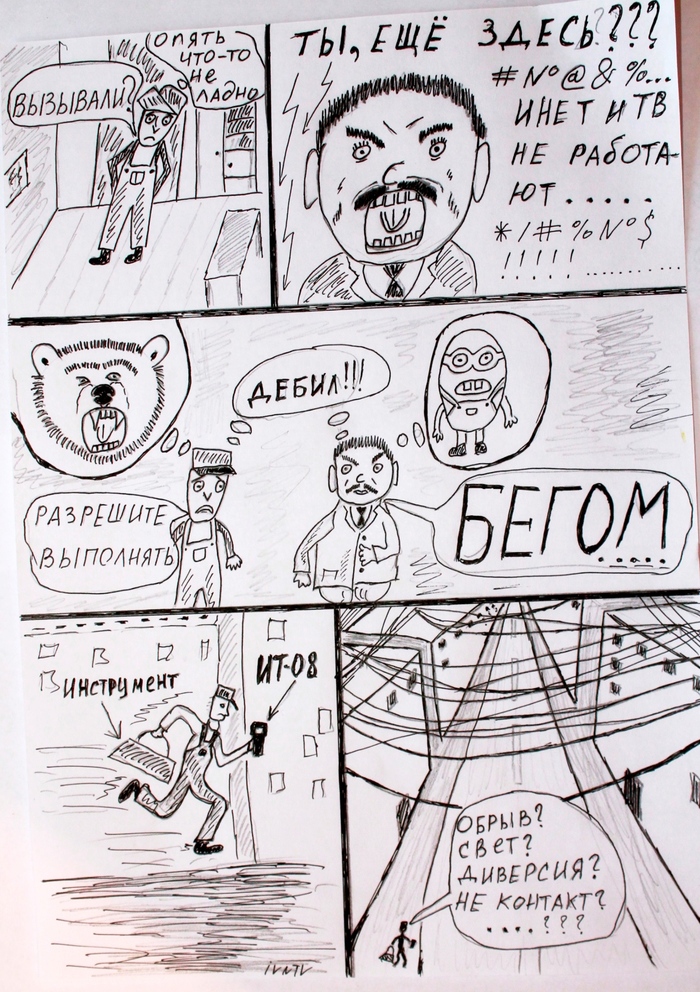 ВЫЗЫВАЛИ?
ОПЯТЬ
ЧТО-ТО
НЕ
ЛАДНО
ТЫ, ЕЩЁ ЗДЕСЬ????
#№@&%...
ИНЕТ И ТВ
НЕ РАБОТА-
ЮТ.....
*/#%№$
!!!!! ..........
ДЕБИЛ!!!
РАЗРЕШИТЕ
ВЫПОЛНЯТЬ
БЕГОМ
.....
ИНСТРУМЕНТ
ИТ-08
ОБРЫВ?
СВЕТ?
ДИВЕРСИЯ?
НЕ КОНТАКТ?
....???